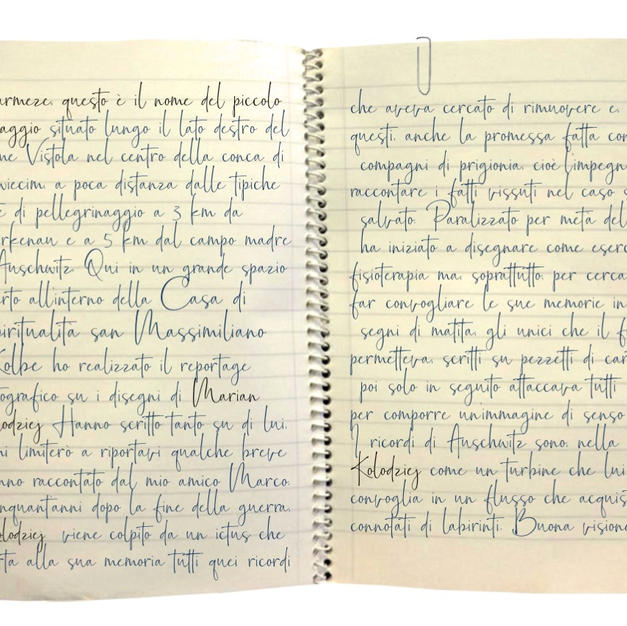 armeze, questo è il nome del piccolo
aggio situato lungo il lato destro del
me Vistola nel centro della conca di
wiecim, a poca distanza dalle tipiche
e di pellegrinaggio a 3 km da
rkenau e a 5 km dal campo madre
Auschwitz. Qui in un grande spazio
rto all'interno della Casa di
piritualità san Massimiliano
Kolbe ho realizzato il reportage
tografico su i disegni di Marian
lodziej. Hanno scritto tanto su di lui,
mi limiterò a riportavi qualche breve
nno raccontato dal mio amico Marco.
nquantanni dopo la fine della guerra,
olodziej, viene colpito da un ictus che
rta alla sua memoria tutti quei ricordi
che aveva cercato di rimuovere e,
questi, anche la promessa fatta con
compagni di prigionia, cioè l'impegn
raccontare i fatti vissuti nel caso s
salvato. Paralizzato per metà del
ha iniziato a disegnare come eserc
fisioterapia ma, soprattutto, per cerca
far convogliare le sue memorie in
segni di matita, gli unici che il f
permetteva, scritti su pezzetti di car
poi solo in seguito attaccava tutti
per comporre un'immagine di senso
I ricordi di Auschwitz sono, nella
Kolodziej come un turbine che lui
convoglia in un flusso che acquis
connotati di labirinti. Buona visione